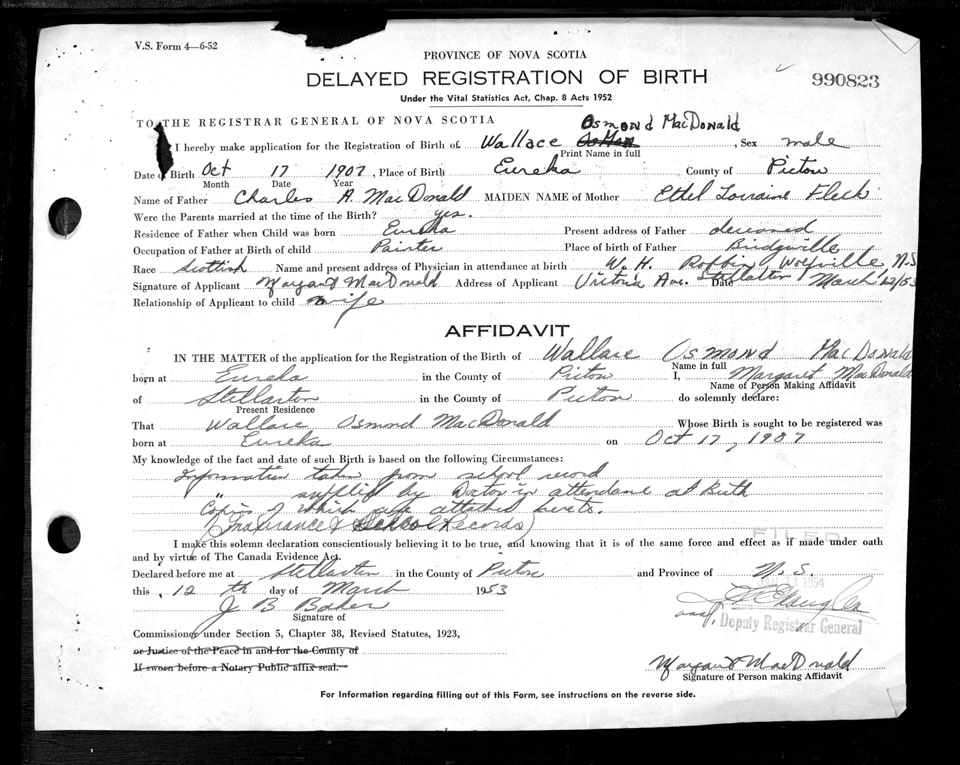 V.S. Form 4—6-52
PROVINCE OF NOVA SCOTIA
DELAYED REGISTRATION OF BIRTH
990823
Under the Vital Statistics Act, Chap. 8 Acts 1952
TO THE REGISTRAR GENERAL OF NOVA SCOTIA
Osmond MacDonald
I hereby make application for the Registration of Birth of Wallace , Sex male
Print Name in full
Date of Birth Oct 17 1907, Place of Birth Eureka County of Pictou
Month Date Year
Name of Father Charles A. MacDonald MAIDEN NAME of Mother Ethel Lorraine Fleck
Were the Parents married at the time of the Birth? yes.
Residence of Father when Child was born Eureka Present address of Father deceased
Occupation of Father at Birth of child Painter Place of birth of Father Bridgeville
Race Scottish Name and present address of Physician in attendance at birth W. H. Robbin Wolfville N.S
Signature of Applicant Margaret MacDonald Address of Applicant Victoria Ave. Stellarton Date March 12/53
Relationship of Applicant to child wife
AFFIDAVIT
IN THE MATTER of the application for the Registration of the Birth of Wallace Osmond MacDonald
Name in full
born at Eureka in the County of Pictou I, Margaret MacDonald
Name of Person Making Affidavit
of Stellarton in the County of Pictou do solemnly declare:
Present Residence
That Wallace Osmond MacDonald Whose Birth is sought to be registered was
born at Eureka on Oct 17, 1907
My knowledge of the fact and date of such Birth is based on the following Circumstances:
Information taken from school record
" supplied by Doctor in attendance at Birth
Copies of which are attached hereto.
(Insurance & School Records)
I make this solemn declaration conscientiously believing it to be true, and knowing that it is of the same force and effect as if made under oath
FILED
and by virtue of The Canada Evidence Act.
Declared before me at Stellarton in the County of Pictou and Province of N.S.
this 12th day of March 1953
J B Baker
Signature of
asst. Deputy Registrar General
Commissioner under Section 5, Chapter 38, Revised Statutes, 1923,
or Justice of the Peace in and for the County of
If sworn before a Notary Public affix seal.
Margaret MacDonald
Signature of Person making Affidavit
For Information regarding filling out of this Form, see instructions on the reverse side.